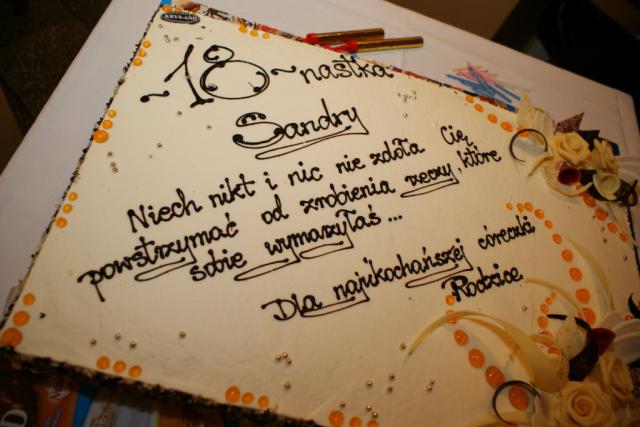 KRYS-AND
-18-nastka
Sandry
Niech nikt i nic nie zdoła Cię
powstrzymać od zrobienia rzeczy, które
sobie wymarzyłaś ...
Dla najukochańszej córeczki
Rodzice